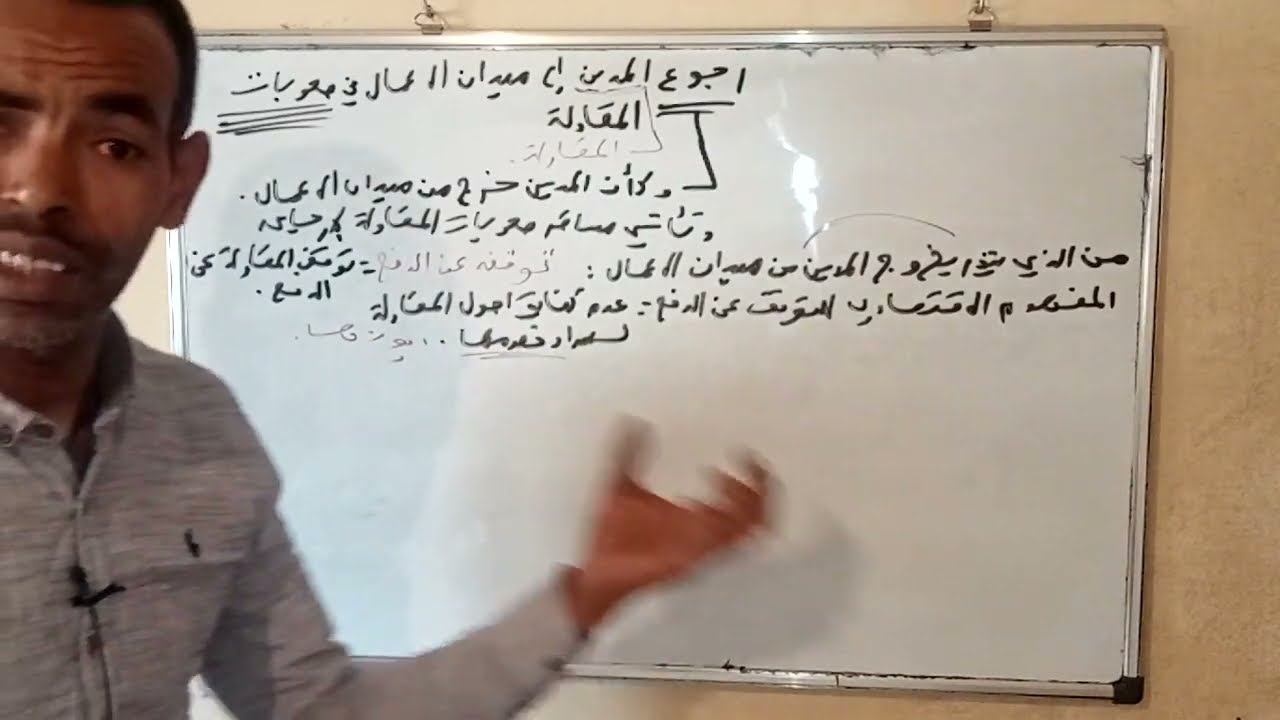 رجوع المدين إلى ميدان الأعمال في صعوبات
المقاولة
المقاولة.
وكأن المدين خرج من ميدان الأعمال.
وتأتي مساطر صعوبات المقاولة
من الذي بخروج المدين من ميدان الأعمال: توقفه عن الدفع = توقف المقاولة عن
الدفع.
المفهوم الاقتصادي للتوقف عن الدفع = عدم كفاية أصول المقاولة
لسداد خصومها..